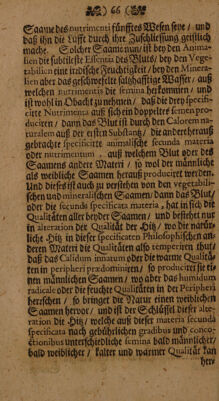 66
Saame des nutrimenti fünfftes Wesen seye / und
daß ihn die Lüffte durch ihre Zuschliessung geistlich
mache. Solcher Saame nun / ist bey den Anima-
lien die subtileste Essentia des Bluts / bey den Vege-
tabilien eine irrdische Feuchtigkeit / bey den Minera-
lien aber das geschwefelte saltzhafftige Wasser / auß
welchen nutrimentis die semina herkommen / und
ist wohl in Obacht zu nehmen / daß die drey specifi-
citte Nutrimenta auß sich ein doppeltes semen pro-
duciren / dann das Blut ist durch den Calorem na-
turalem auß der ersten Substantz / die andere herauß
gebrachte specificitte animalische secunda materia
oder nutrimentum / auß welchem Blut oder des
Saamens andere Materi / so wol der männliche
als weibliche Saamen herauß produciret werden.
Und dieses ist auch zu verstehen von den vegetabili-
schen und mineralischen Saamen / dann das Blut /
oder die secunda specificata materia, hat in sich die
Qualitäten aller beyder Saamen / und bestehet nur
in alteration der Qualität der Hitz / wo die natür-
liche Hitz in dieser specificaten Philosophischen an-
deren Materi die Qualitäten also temperien thut /
daß das Calidum innatum oder die warme Qualitä-
ten in peripheri prædominiren / so produciret sie ei-
nen männlichen Saamen / wo aber das humidum
radicale oder die feuchte Qualitäten in der Peripheri
herrschen / so bringet die Natur einen weiblichen
Saamen hervor / und ist der Schlüssel dieser alte-
ration die Hitz / welche auß dieser materia secunda
specificata nach gebührlichen gradibus und conco-
ctionibus unterschiedliche semina bald männlicher /
bald weiblicher / kalter und warmer Qualität kan
her-